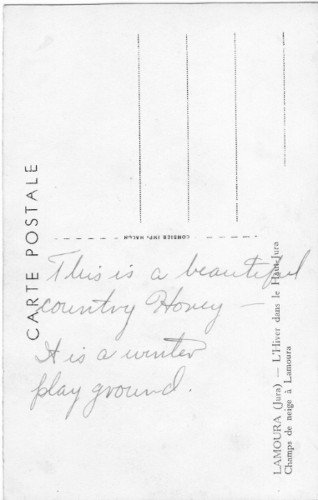 CARTE POSTALE
COMBIER IMP. MACON
This is a beautiful
country Honey —
It is a winter
play ground.
LAMOURA (Jura) — L'Hiver dans le Haut-Jura
Champs de neige à Lamoura